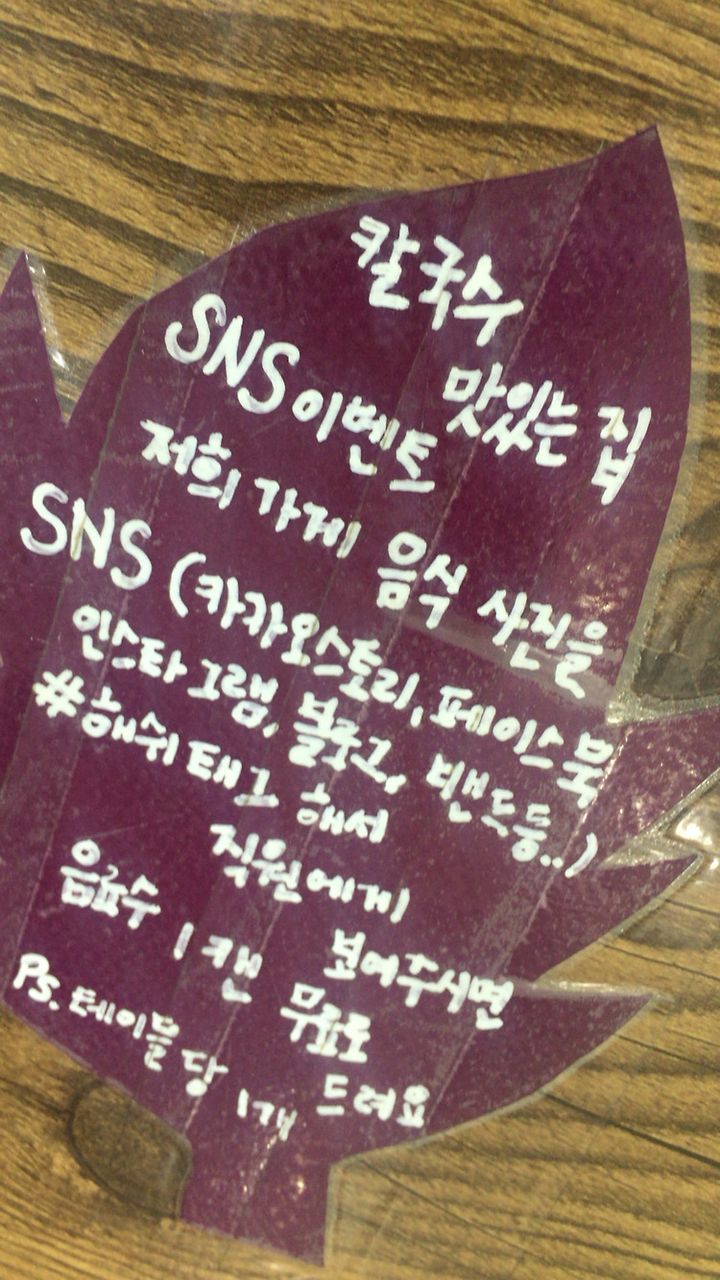 칼국수 맛있는 집
SNS 이벤트
저희 가게 음식 사진을
SNS (카카오스토리, 페이스북
인스타그램, 블로그, 밴드등..)
#해쉬태그 해서
직원에게 보여주시면
음료수 1캔 무료로 드려요
Ps. 테이블 당 1개